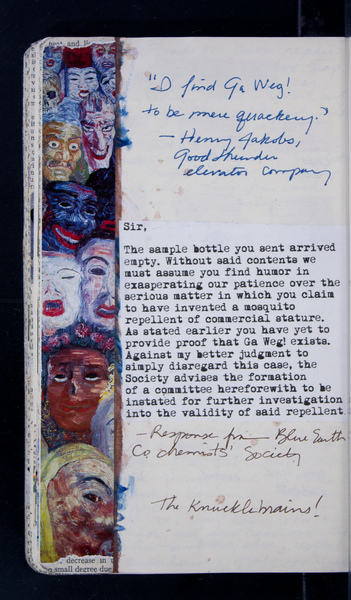 "I find Ga Weg!
to be mere quackery."
— Henry Jakobs,
Good Thunder
elevator company
Sir,
The sample bottle you sent arrived
empty. Without said contents we
must assume you find humor in
exasperating our patience over the
serious matter in which you claim
to have invented a mosquito
repellent of commercial stature.
As stated earlier you have yet to
provide proof that Ga Weg! exists.
Against my better judgment to
simply disregard this case, the
Society advises the formation
of a committee hereforewith to be
instated for further investigation
into the validity of said repellent.
— Response from Blue Earth
Co. chemists' Society
The Knucklebrains!
decrease in
small degree due